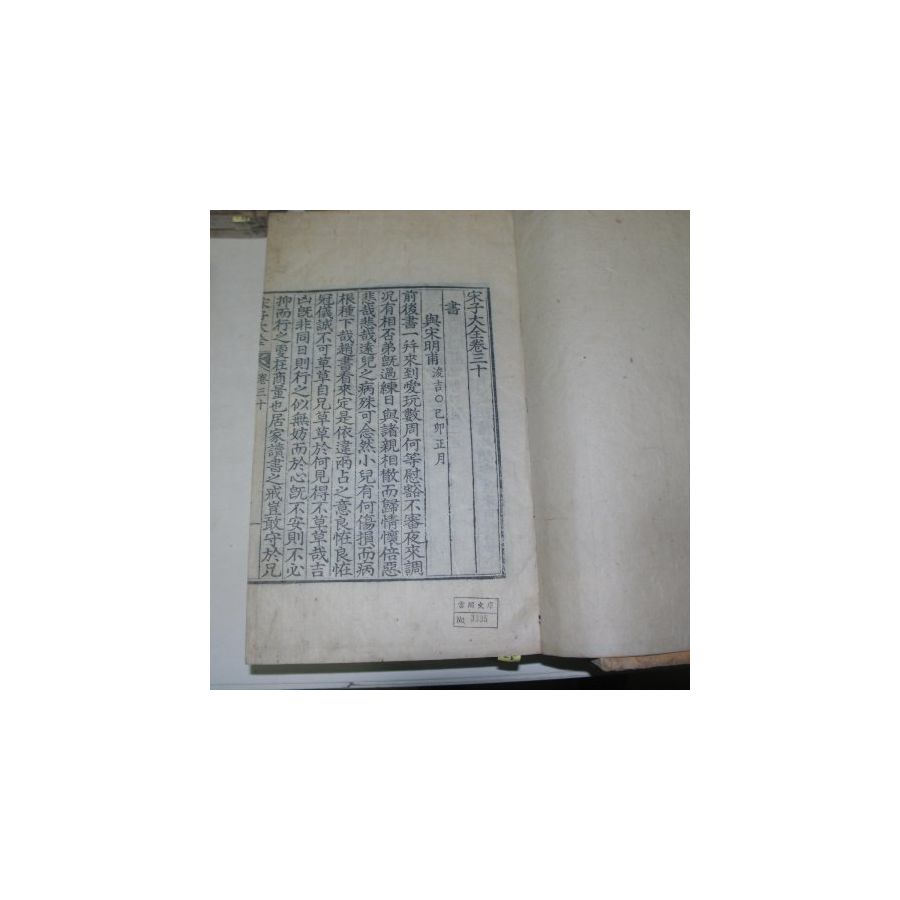 宋子大全卷三十
書
與宋明甫 浚吉○己卯正月
前後書一幷來到愛玩數周何等慰豁不審夜來調
况有相否弟旣過練日與諸親相撤而歸情懷倍惡
悲哉悲哉遠兒之病殊可念然小兒有何傷損而病
根種下哉趙書看來定是依違兩占之意良怪良怪
冠儀誠不可草草自兄草草於何見得不草草哉吉
凶旣非同日則行之似無妨而於心旣不安則不必
抑而行之要在商量也居家讀書之戒豈敢守於兄
宋子大全 卷三十
文庫
No. 3335